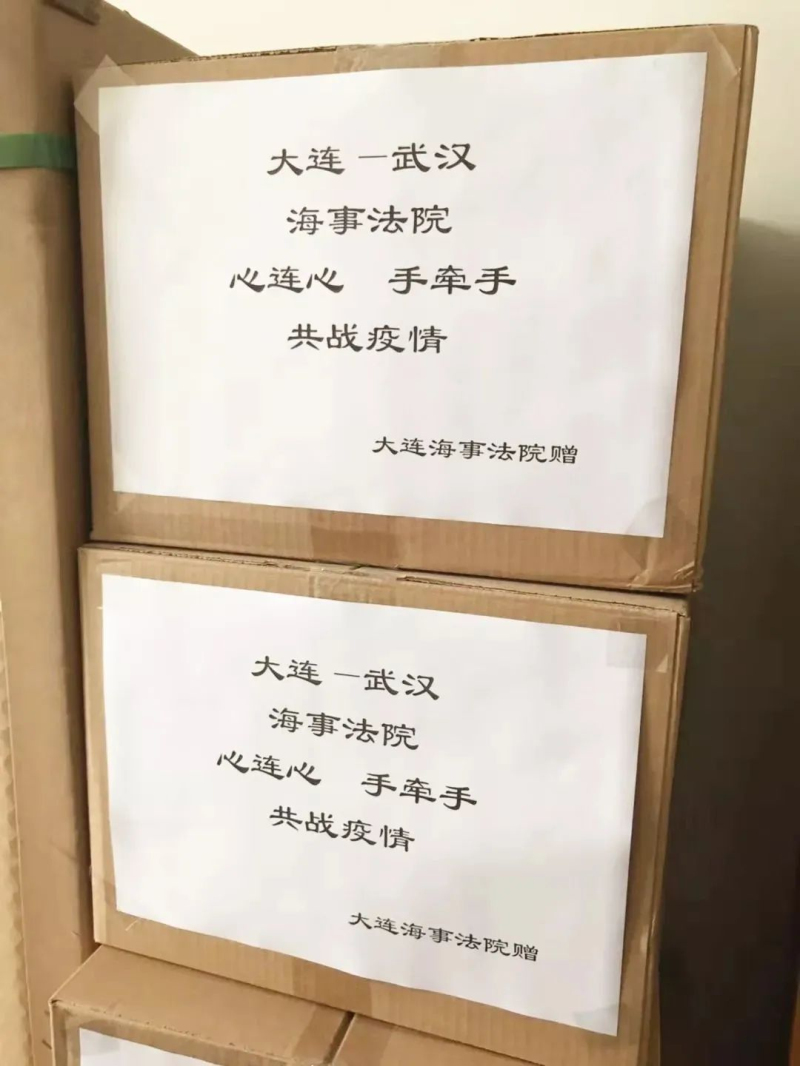 大连 — 武汉
海事法院
心连心 手牵手
共战疫情
大连海事法院赠
大连 — 武汉
海事法院
心连心 手牵手
共战疫情
大连海事法院赠